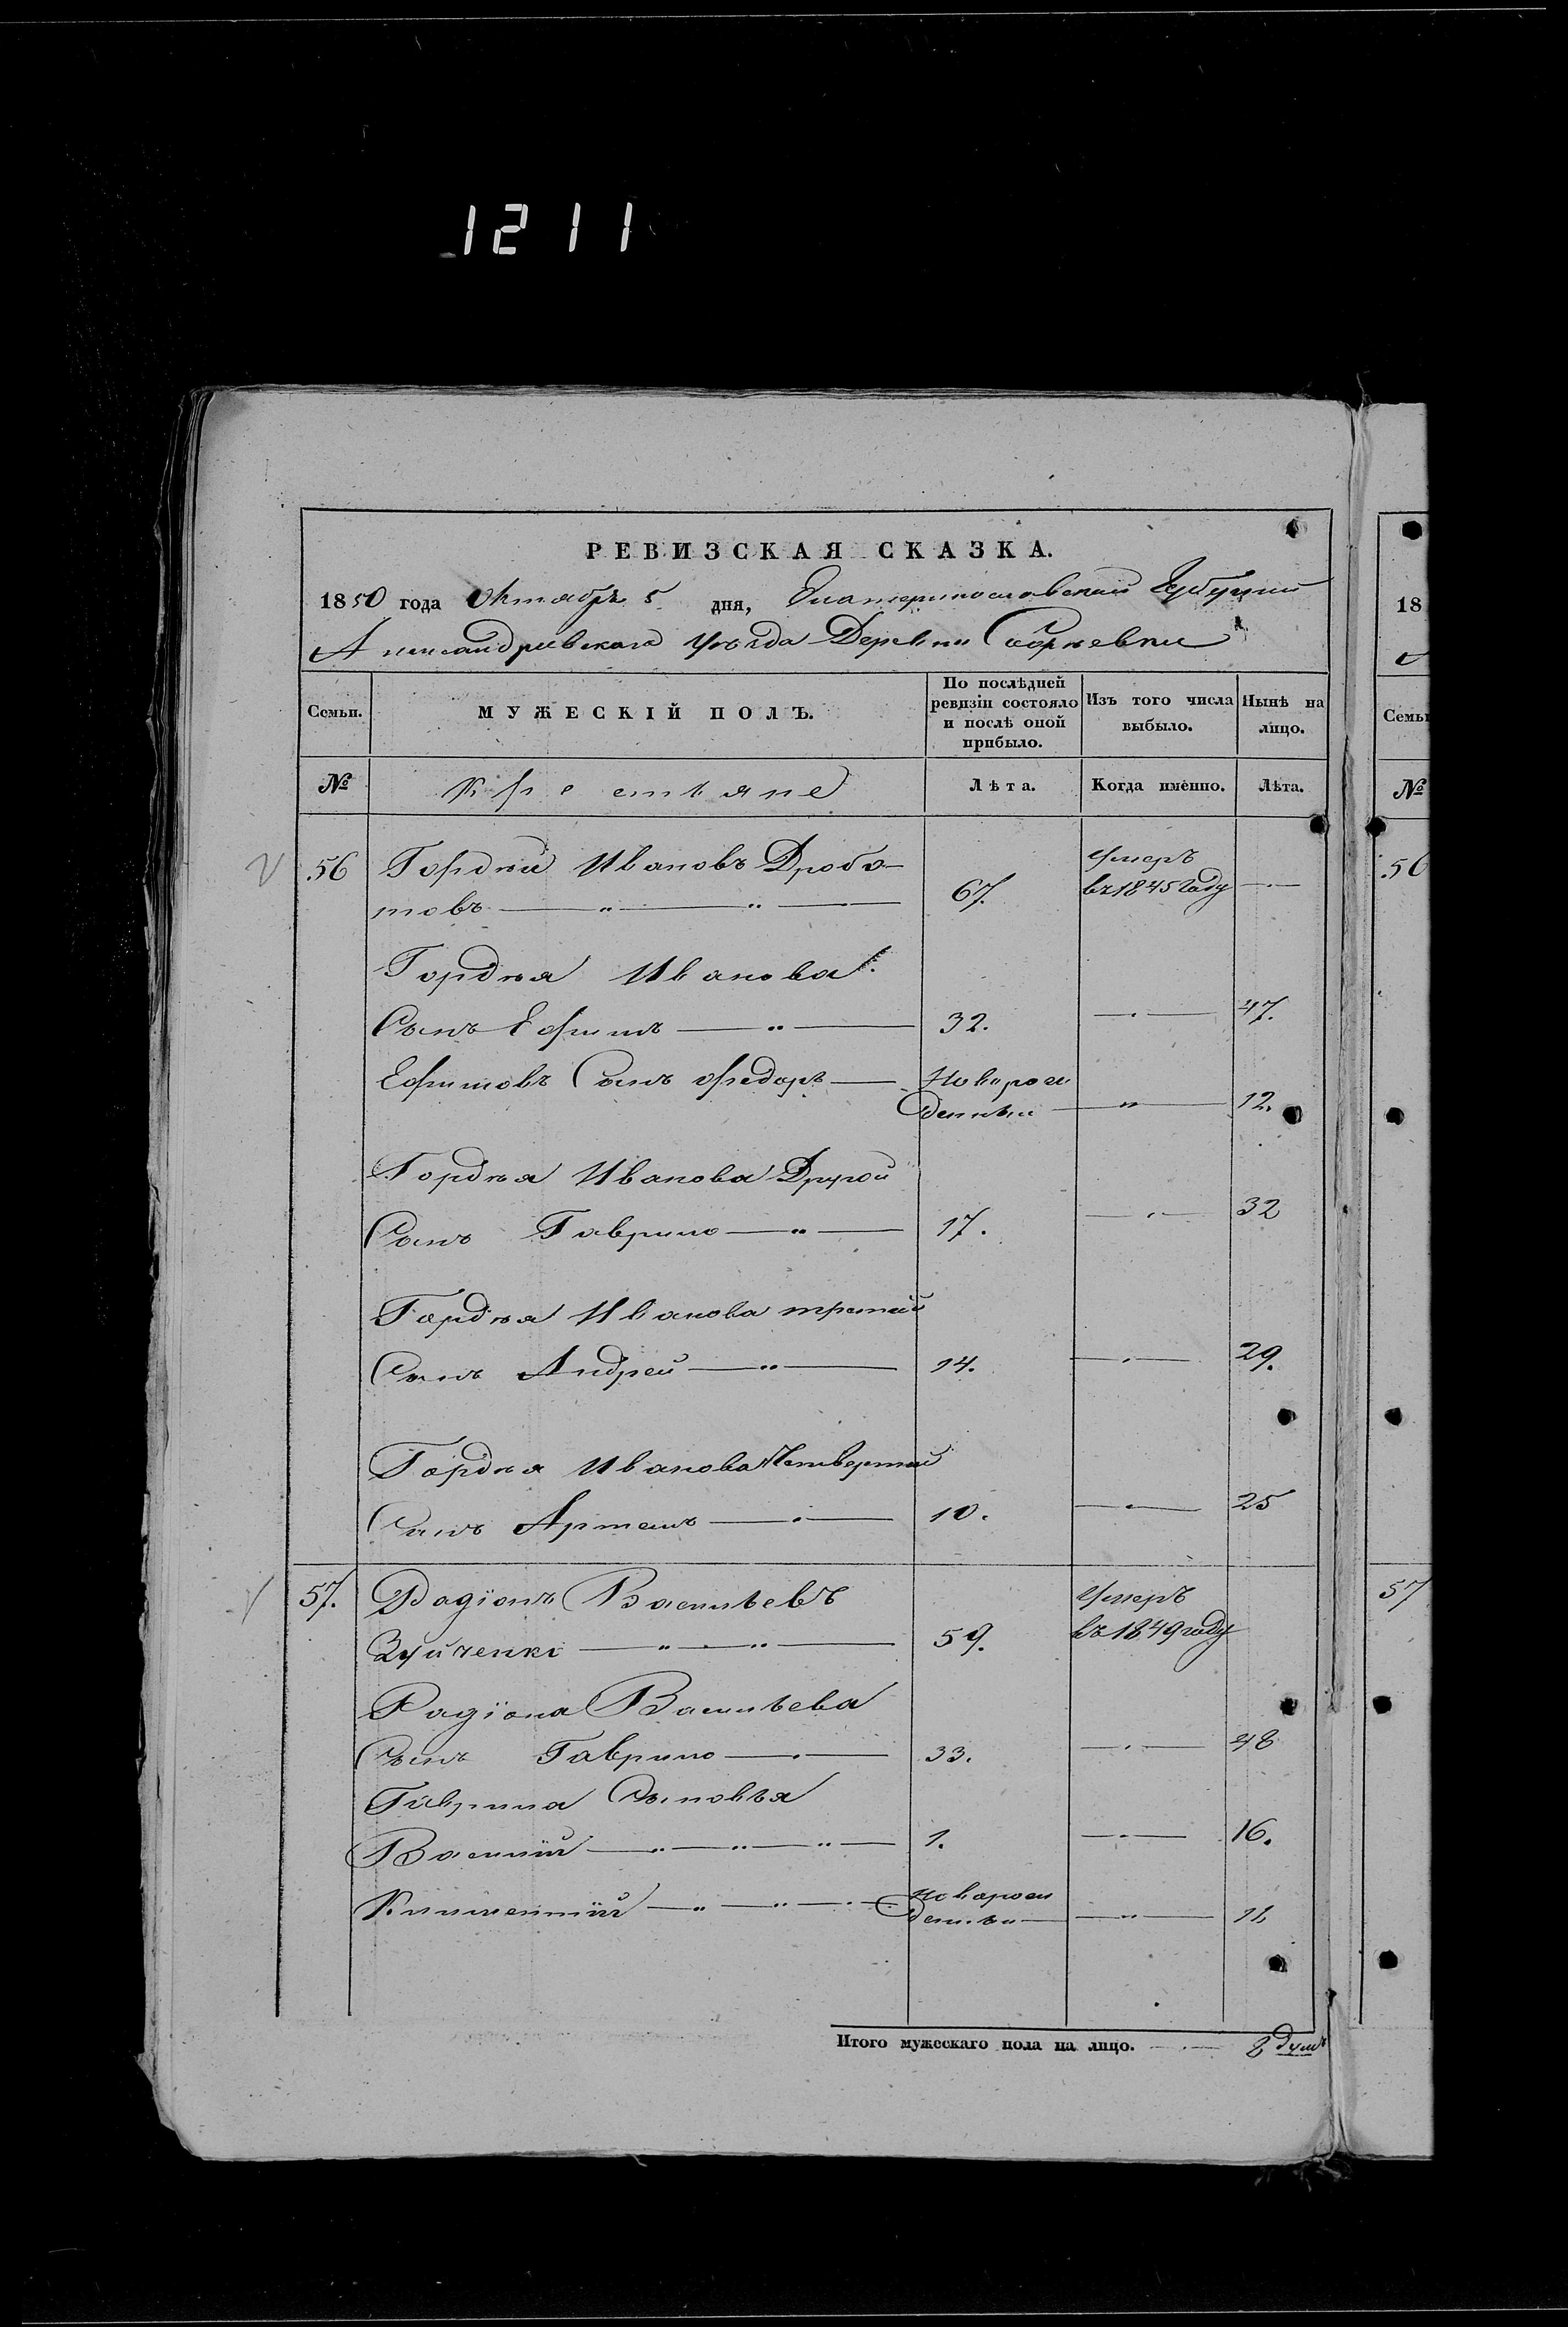 1211
РЕВИЗСКАЯ СКАЗКА.
1850 года Октября 5 дня, Екатеринославской Губернии
Александровскаго Уѣзда Деревни
Семьи. МУЖЕСКІЙ ПОЛЪ. По послѣдней ревизіи состояло и послѣ оной прибыло. Изъ того числа выбыло. Нынѣ на лицо.
№ Крестьяне Лѣта. Когда именно. Лѣта.
56 Гордѣй Ивановъ Дробо- Умеръ
товъ 67. въ 1845 году
Гордѣя Иванова 1.
Сынъ Ефимъ 32. 47.
Ефимовъ Сынъ Федоръ Новорож
денный 12.
Гордѣя Иванова Другой
Сынъ Гаврило 17. 32
Гордѣя Иванова третий
Сынъ Андрей 14. 29.
Гордѣя Иванова Четвертый
Сынъ Артемъ 10. 25
57. Радіонъ Васильевъ Умеръ
Зуйченко 59. въ 1849 году
Радіона Васильева
Сынъ Гаврило 33. 48
Гаврила Сыновья
Василій 1. 16.
Климентій Новорож
денный 11
Итого мужескаго пола на лицо. 8 душъ
18
Семьи
№
56
57